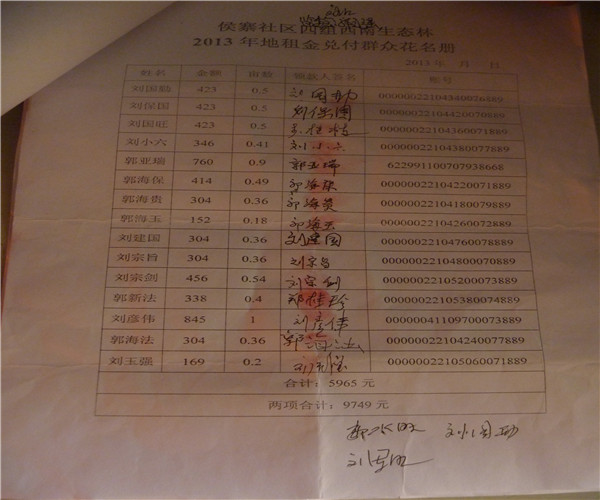 侯寨社区四组西南生态林
2013年地租金兑付群众花名册
2013年 月 日
姓名 金额 亩数 领款人签名 账号
刘国勋 423 0.5 刘国勋 00000022104340076889
刘保国 423 0.5 刘保国 00000022104420070889
刘国旺 423 0.5 00000022104360071889
刘小六 346 0.41 刘小六 00000022104380077889
郭亚瑞 760 0.9 郭亚瑞 622991100707938668
郭海保 414 0.49 郭海保 00000022104220071889
郭海贵 304 0.36 郭海贵 00000022104180079889
郭海玉 152 0.18 郭海玉 00000022104260072889
刘建国 304 0.36 刘建国 00000022104760078889
刘宗旨 304 0.36 刘宗旨 00000022104800070889
刘宗剑 456 0.54 刘宗剑 00000022105200073889
郭新法 338 0.4 00000022105380074889
刘彦伟 845 1 刘彦伟 00000041109700073889
郭海法 304 0.36 郭海法 00000022104240077889
刘玉强 169 0.2 刘玉强 00000022105060071889
合计：5965 元
两项合计：9749 元
刘国勋
刘国旺